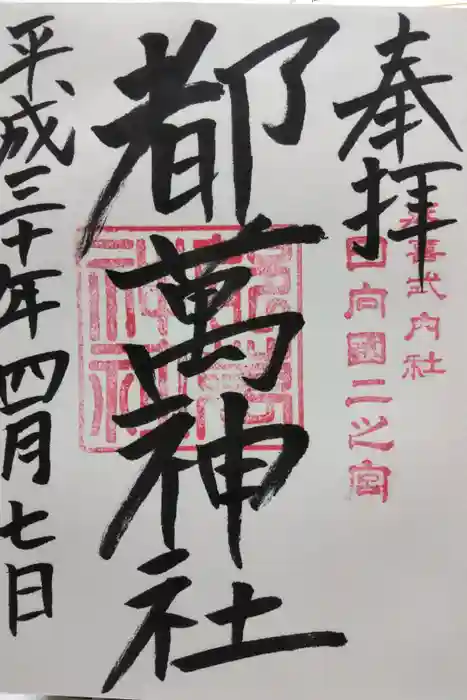 奉拝
延喜式内社
日向國二之宮
都萬神社
平成三十年四月七日